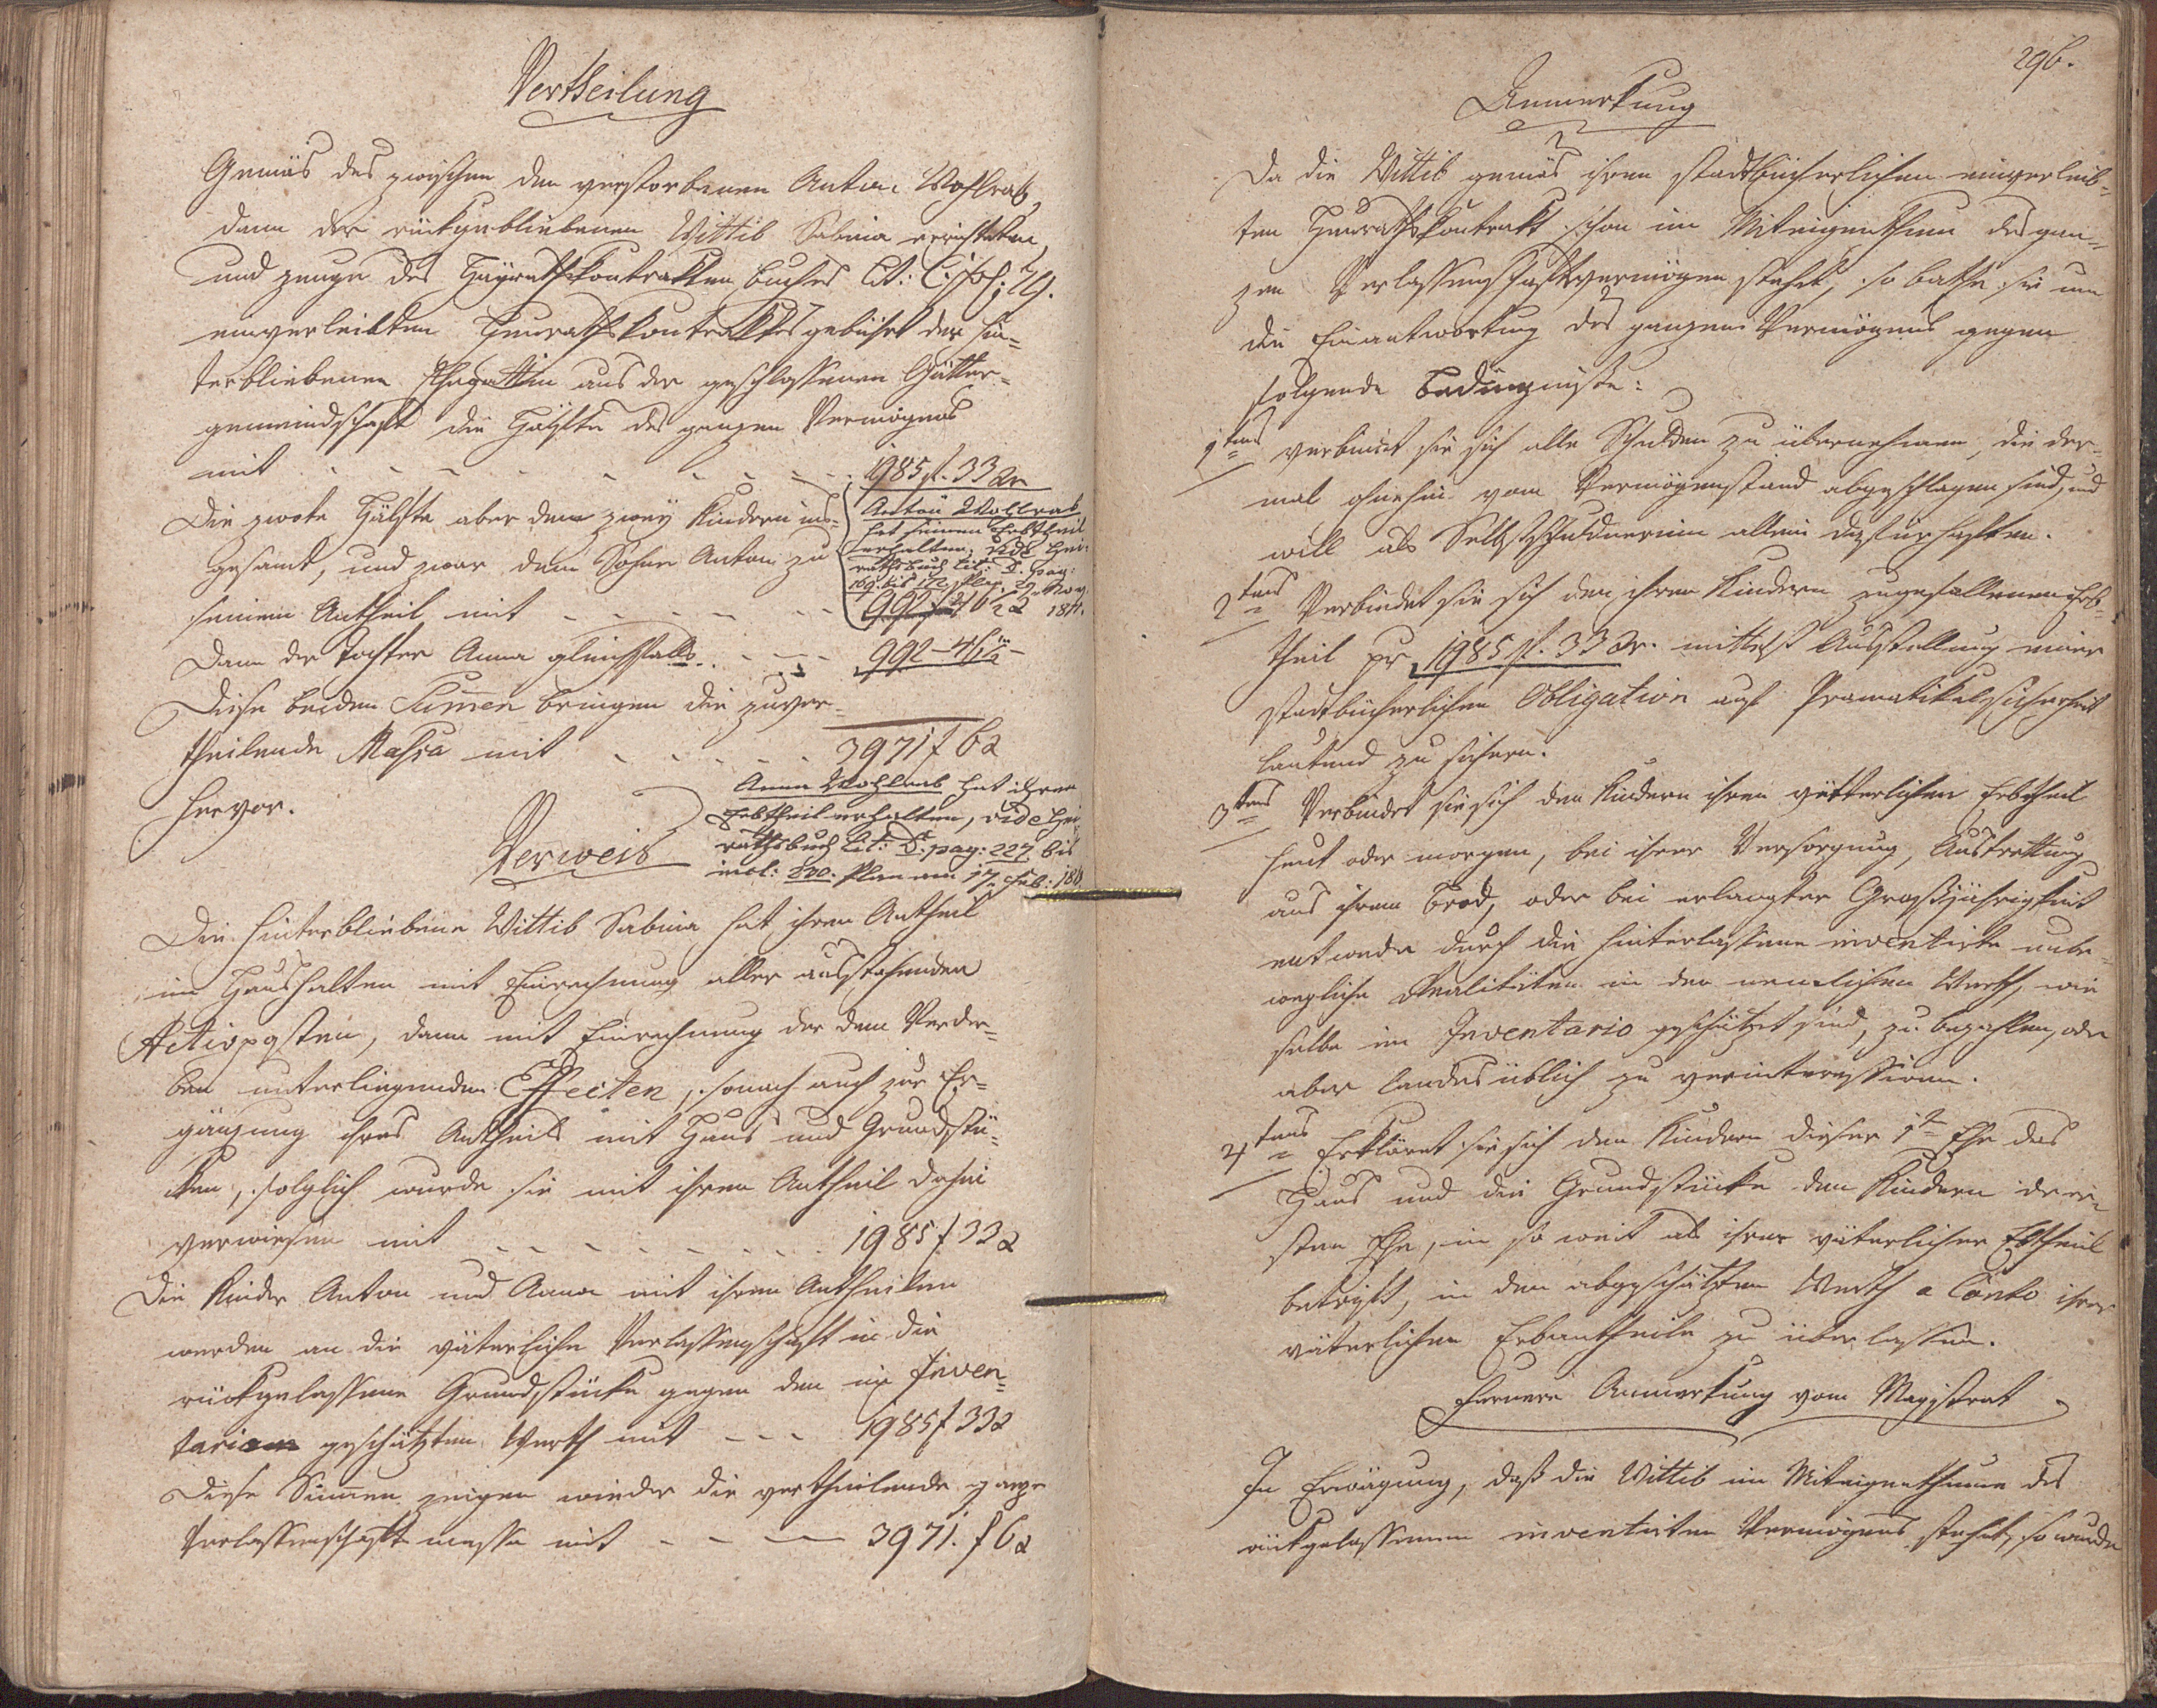 Vertheilung
Gemäs des zwischen dem verstorbenen Anton Wohlrab,
dann der rückgebliebenen Wittib Sabina errichteten,
und zeuge des Heyrathskontrakten buches Lit: C. fol: 29.
einverleibten Heurathskontraktes gebührt der hin-
terbliebenen Ehegattin aus der geschlossenen Gütter-
gemeindschaft die Hälfte des ganzen Vermögens
mit - - - - - - 1985 f. 33 xr
Die zwote Hälfte aber denen zwey Kindern ins-
gesamt, und zwar dem Sohne Anton zu
seinem Antheil mit - - - - 992 f 46 ½ x
Anton Wohlrab
hat seinen Erbtheil
erhalten, vide Hei-
rathsbuch Lit: D. pag:
169. bis 172. Plan 29. Nov.
Dann der Tochter Anna gleichfalls - - - 992 - 46 ½ -
Diese beiden Sum̅en bringen die zuver-
theilende Massa mit - - - - - 3971 f 6 x
hervor.
Anna Wohlrab hat ihren
Erbtheil erhalten, vide Hei-
rathsbuch Lit: D. pag: 227 bis
incl: 230. Plan am 17. Feb: 181
Verweis
Die hinterbliebene Wittib Sabina hat ihren Antheil
im Haushalten mit Einrechnung aller ausstehenden
Activposten, dann mit Einrechnung der dem Verder-
ben unterliegenden Effecten, sonach auch zur Er-
gänzung ihres Antheils mit Haus und Grundstü-
ken, folglich wurde sie mit ihren Antheil dahin
verwiesen mit - - - - - - - 1985 f 33 x
Die Kinder Anton und Anna mit ihren Antheilen
werden an die väterliche Verlassenschaft in die
rückgelassene Grundstücke gegen den im Inven-
tarium geschätzten Werth mit - - - 1985 f 33 x
Diese Sum̅en zeigen wieder die vertheilende ganze
Verlassenschafts massa mit - - - 3971. f 6 x
296.
Anmerkung
Da die Wittib gemäs ihren stadtbücherlichen einverleib-
ten Heurathskontrakt schon im Miteigenthum des gan-
zen Verlassenschaftsvermögen stehet, so bathe sie um
die Einantwortung des ganzen Vermögens gegen
folgende Bedingnisse:
1tens verbindet sie sich alle Schulden zu übernehmen, die der-
mal ohnehin vom Vermögenstand abgeschlagen sind, und
will als Selbstschuldnerin allein dafür haften.
2tens Verbindet sie sich den ihren Kindern zugefallenen Erb-
theil pr 1985 f. 33 xr. mittelst Ausstellung einer
stadtbücherlichen Obligation auf Pramatikalsicherheit
lautend zu sichern.
3tens Verbindet sie sich den Kindern ihren vätterlichen Erbtheil
heut oder morgen, bei ihrer Versorgung, Austrettung
aus ihrem Brod, oder bei erlangter Grossjährigkeit
entweder durch die hinterlassene inventirte unbe-
wegliche Realitäten in den nemlichen Werth, wie
selbe im Inventario geschätzet sind, zu bezahlen, oder
aber landesüblich zu verinteressiren.
4tens Erkläret sie sich den Kindern dieser 1ten Ehe das
Haus und die Grundstücke den Kindern der er-
sten Ehe, in so weit als ihrer väterlicher Ebtheil
beträgt, in den abgeschätzten Werth a Conto ihrer
väterlichen Erbantheile zu überlassen.
Fernere Anmerkung vom Magistrat
In Erwägung, daß die Wittib im Miteigenthume des
rückgelassenen inventirten Vermögens stehet, so wurde